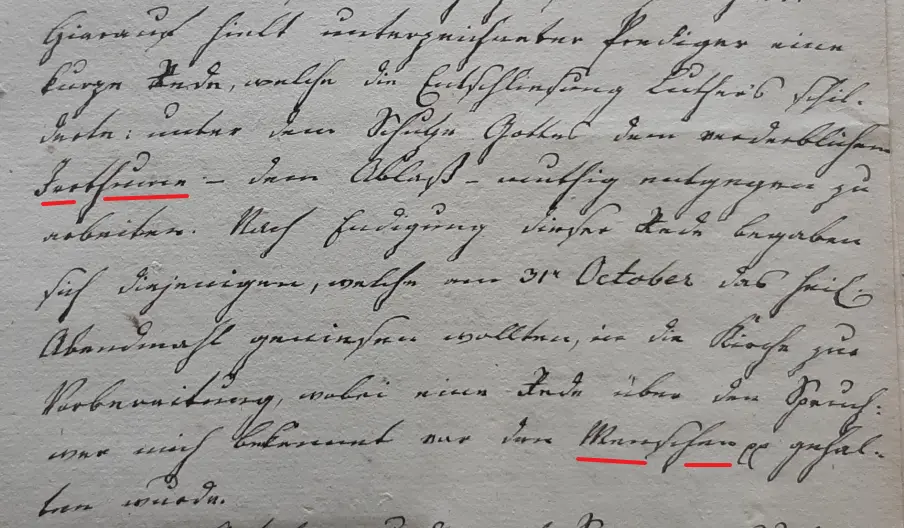 Hierauf hielt unterzeichneter Prediger eine
kurze Rede, welche die Entschließung Luthers schil-
derte: unter dem Schutze Gottes dem verderblichen
Irrthume – dem Ablaß – muthig entgegen zu
arbeiten. Nach Endigung dieser Rede begaben
sich diejenigen, welche am 31r October das heil.
Abendmahl genießen wollten, in die Kirche zur
Vorbereitung, wobei eine Rede über den Spruch:
wer mich bekennet vor den Menschen pp gehal-
ten wurde.